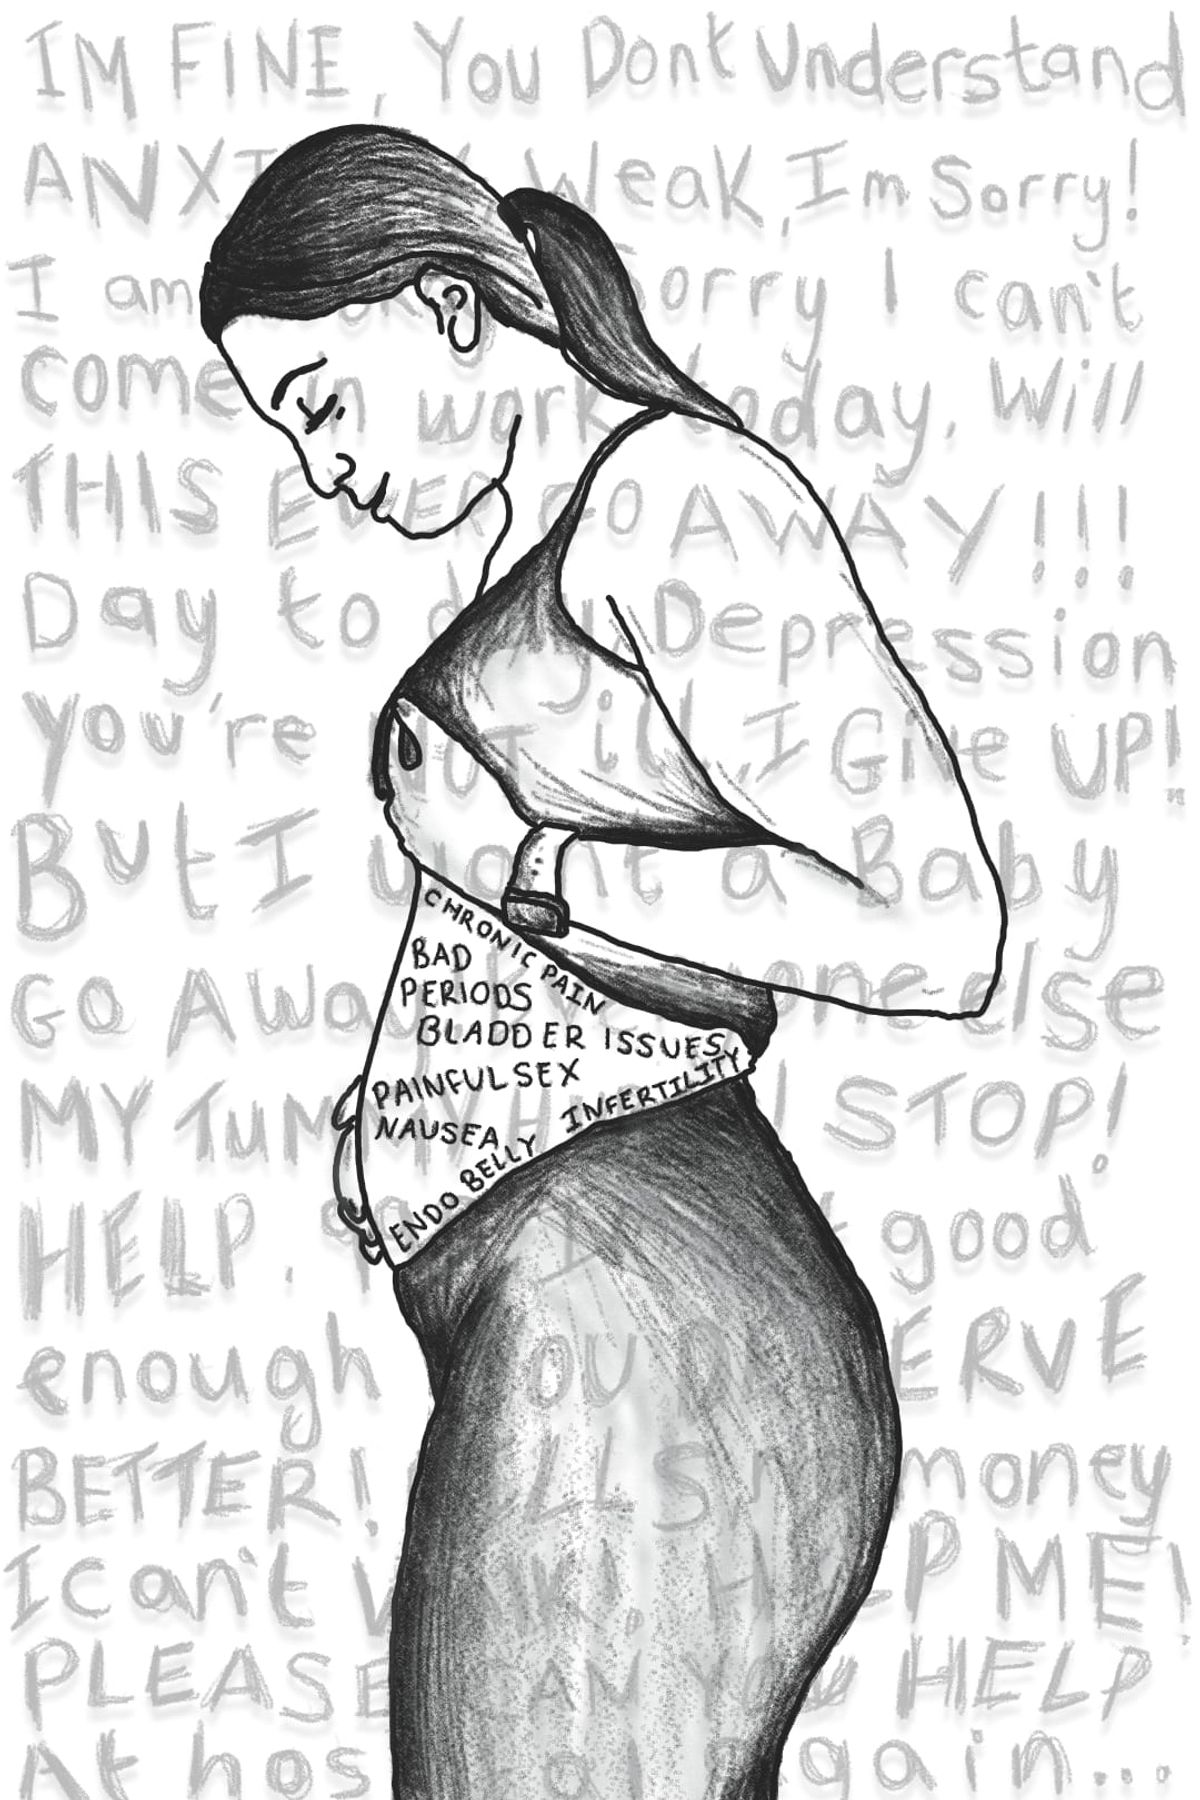 IM FINE, You Dont Understand
Weak, Im Sorry!
I am Sorry I can't
come in work today. Will
THIS EVER GO AWAY!!!
Day to day Depression
you're NOT ill, I Give UP!
But I want a Baby
GO Away someone else
MY TUMMY STOP!
HELP. good
enough
BETTER! money
I can't HELP ME!
PLEASE CAN YOU HELP
At again...
CHRONIC PAIN
BAD
PERIODS
BLADDER ISSUES
PAINFUL SEX
NAUSEA
INFERTILITY
ENDO BELLY